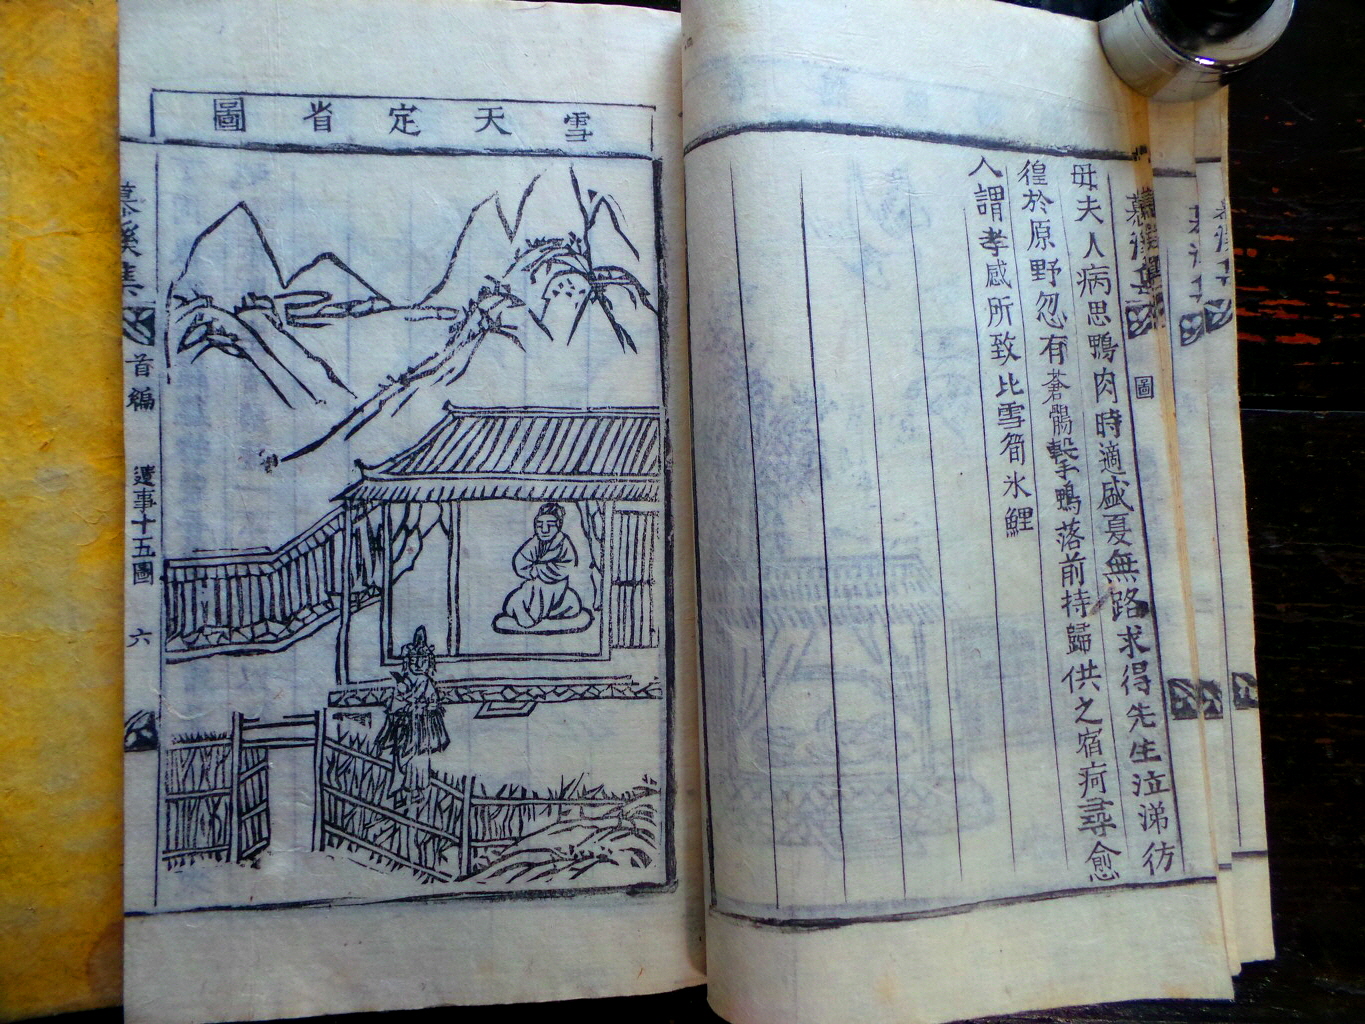 母夫人病思鴨肉時適盛夏無路求得先生泣涕彷
徨於原野忽有蒼鶻擊鴨落前持歸供之宿疴尋愈
人謂孝感所致比雪筍氷鯉
圖
雪天定省圖
慕溪集
首編
遺事十五圖
六